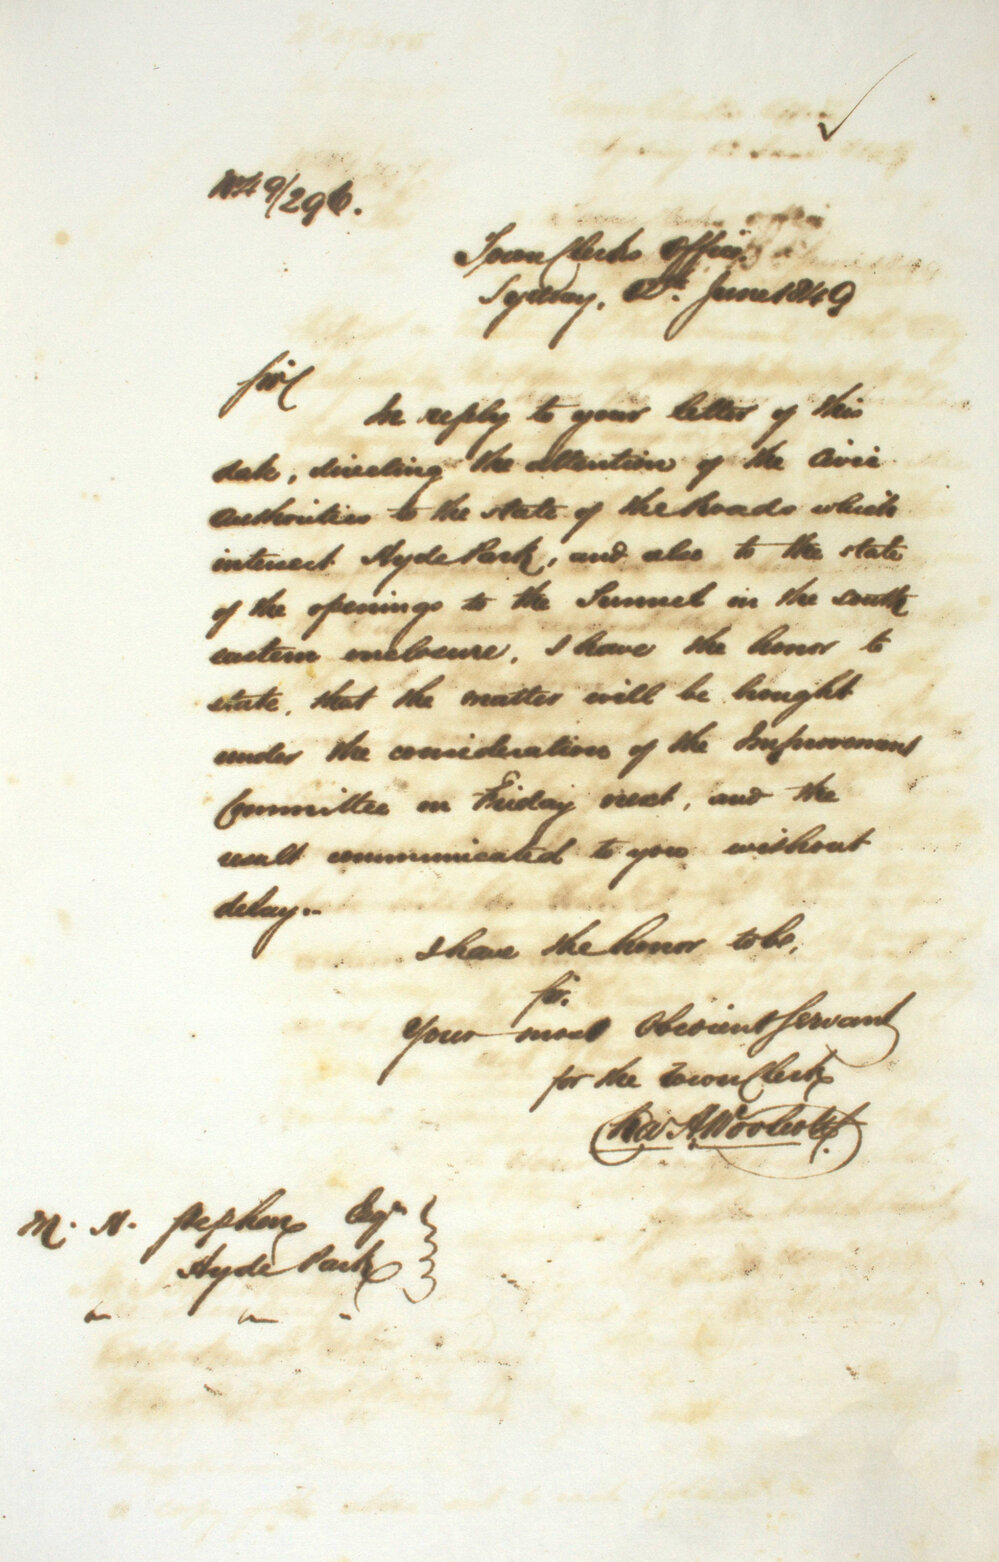 No 49/296.
Town Clerks Office
Sydney, June 1849
Sir
In reply to your letter of this
date, directing the attention of the Civic
authorities to the state of the Roads which
intersect Hyde Park, and also to the state
of the openings to the Tunnel in the south
eastern enclosure, I have the honor to
state, that the matter will be brought
under the consideration of the Improvement
Committee on Friday next, and the
result communicated to you without
delay..
I have the honor to be,
Sir,
Your most Obedient Servant
for the Town Clerk
M. H. Stephen Esqr
Hyde Park